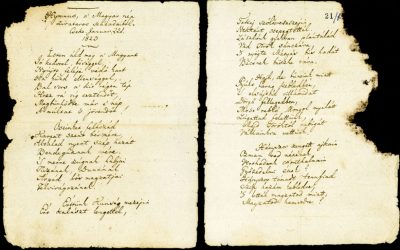 Hymnus, a' Magyar nép
zivataros századaiból.
Cseke, Januar. 22d
1823
Isten áldd meg a' Magyart
Jó kedvvel, bőséggel,
Nyújts feléje védő kart
Ha küzd ellenséggel;
Bal sors a' kit régen tép
Hozz rá víg esztendőt,
Megbünhödte már e' nép
A' multat 's jövendőt!
Őseinket felhozád
Kárpát szent bérczére,
Általad nyert szép hazát
Bendegúznak vére.
'S merre zúgnak habjai
Tiszának, Dunának,
Árpád hős magzatjai
Felvirágozának.
Értünk Kunság mezejin
Ért kalászt lengettél,
21
Tokaj szőlővesszein
Nektárt csepegtettél.
Zászlónk gyakran plántálád
Vad Török sánczára,
'S nyögte Mátyás bús hadát
Bécsnek büszke vára.
Hajh, de bűneink miatt
Gyúlt harag kebledben,
'S elsújtád villámidat
Dörgő fellegedben,
Most rabló Mongol nyilát
Zúgattad felettünk,
Majd Töröktől rabigát
Vállainkra vettünk.
Hányszor zengett ajkain
Ozman vad népének
Vert hadunk csonthalmain
Győzedelmi ének!
Hányszor támadt tenfiad
Szép hazám kebledre,
'S lettél magzatod miatt
Magzatod hamvvedre.